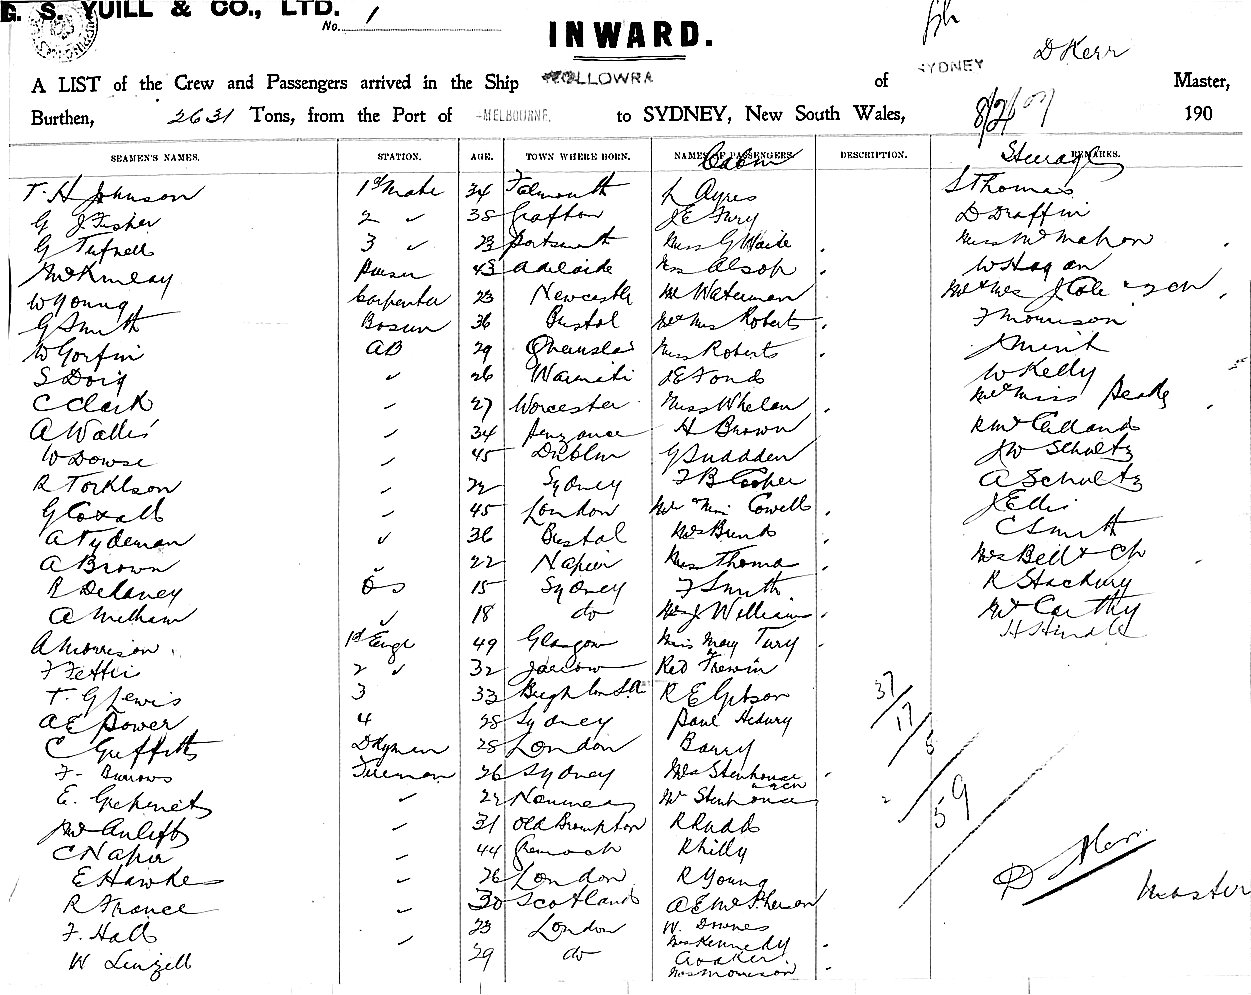 G. S. YUILL & CO., LTD.
No. 1
INWARD.
D Kerr
A LIST of the Crew and Passengers arrived in the Ship WOLLOWRA of SYDNEY Master,
Burthen, 2631 Tons, from the Port of MELBOURNE to SYDNEY, New South Wales, 8/2/07 190
SEAMEN'S NAMES. STATION. AGE. TOWN WHERE BORN. NAMES OF PASSENGERS Cabin DESCRIPTION. REMARKS. Steerage
T. H Johnson 1st Mate 34 Falmouth L Ayres S Thomas
G J Fisher 2 ✓ 38 Grafton J E Tury D Draffin
G Tufnell 3 ✓ 23 Portsmouth Miss G Waite Miss McMahon
McKinlay Purser 43 Adelaide Alsop W Hagan
W Young Carpenter 23 Newcastle Mr Waterman Mr & Mrs J Cole & 2 ch
G Smith Bosun 36 Bristol Mr & Mrs Roberts F Morrison
W Gorfin AB 29 Miss Roberts
S Doig ✓ 26 W Kelly
C Clark ✓ 27 Worcester Miss Whelan Mr & Miss
A Wallis ✓ 34 Penzance H Brown
W Dowse ✓ 45 Dublin G Sudden J W Schultz
R Torklson ✓ 22 Sydney F B Cooper A Schultz
G Coxall ✓ 45 London Mr & Mrs Cowell J Ellis
A Tydeman ✓ 36 Bristol Mrs C Smith
A Brown ✓ 22 Napier Miss Thomas Mrs Bell & Ch
R Delaney OS 15 Sydney F Smith R
A ✓ 18 do J Williams McCarthy
A Morrison 1st Engr 49 Glasgow Miss May Tury H Hindle
F Fettis 2 ✓ 32 Jarrow Red Trewin
T. G Lewis 3 33 R E Gibson 37
A E Power 4 28 Sydney Paul 17
C Griffiths Dkyman 28 London Barry 5
F. Burrows Fireman 26 Sydney Mrs Stenhouse & 2 ch
E. ✓ 22 Noumea Mr Stenhouse 59
✓ 31 Old Brompton R Rudd
C Napier ✓ 44 Greenock R Kelly D Kerr
E Hawke ✓ 26 London R Young Master
R France ✓ 30 Scotland A E McPherson
F. Hall ✓ 23 London W. Downes
W Linzell 29 do Mrs Kennedy
Mrs Morrison